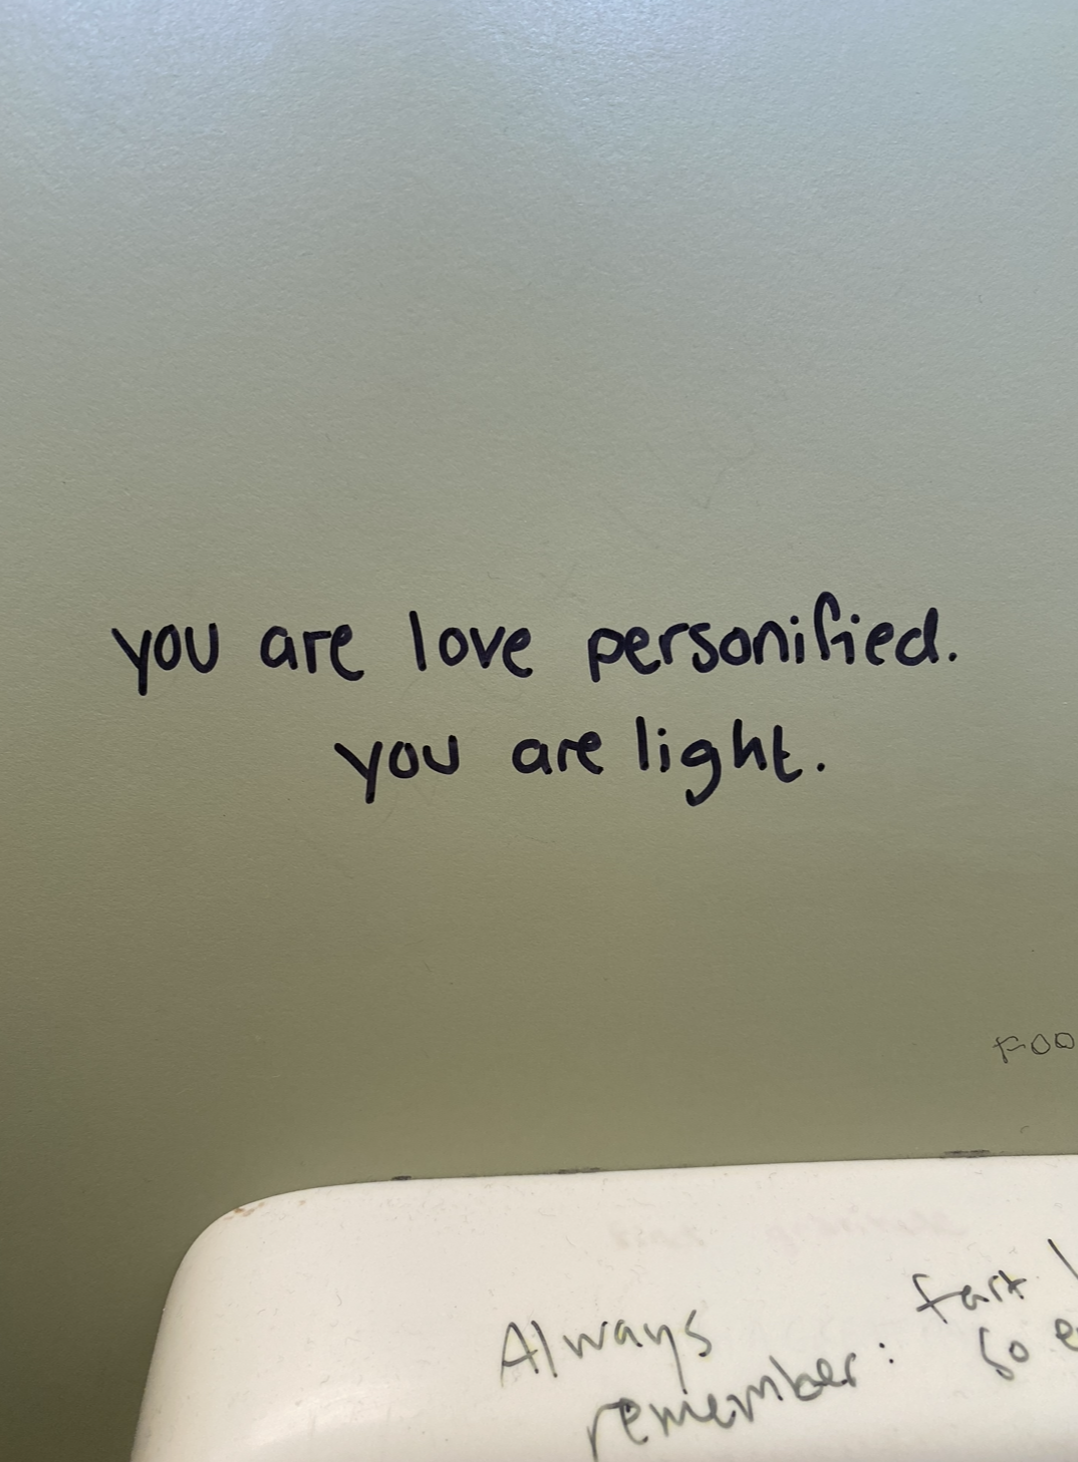 you are love personified.
you are light.
FOO
Always
remember: fart
so e